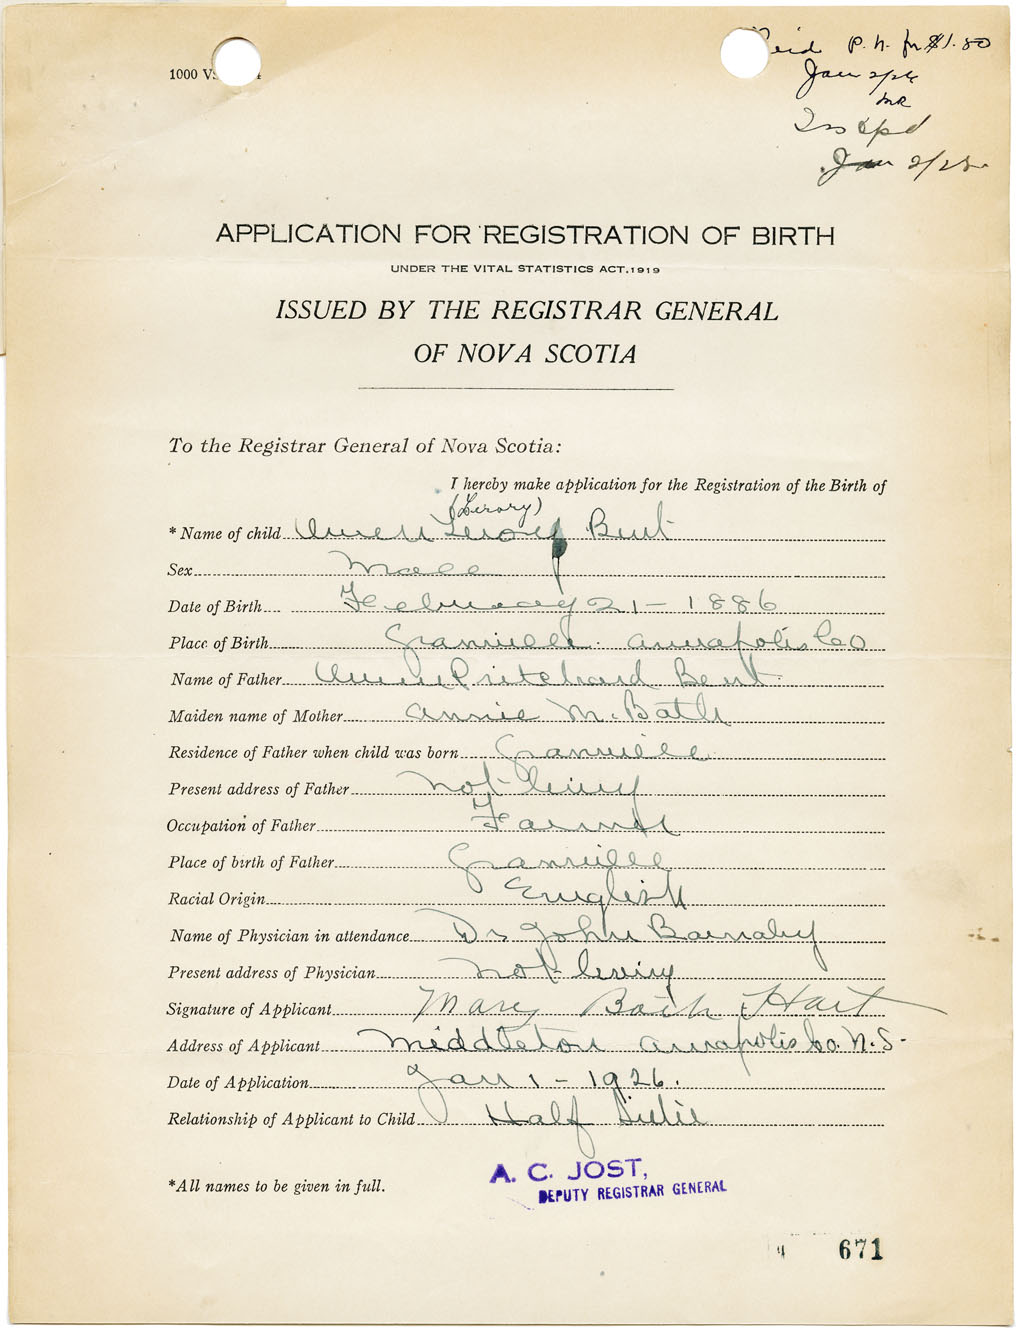 P. N. for $1.50
1000 VS
Jan 2/26
MR
Jan 2/26
APPLICATION FOR REGISTRATION OF BIRTH
UNDER THE VITAL STATISTICS ACT, 1919
ISSUED BY THE REGISTRAR GENERAL
OF NOVA SCOTIA
To the Registrar General of Nova Scotia:
I hereby make application for the Registration of the Birth of
(Lerory)
* Name of child Owen Leroy Bent
Sex Male
Date of Birth February 21 - 1886
Place of Birth Granville Annapolis Co
Name of Father Owen Pritchard Bent
Maiden name of Mother Annie M. Bath
Residence of Father when child was born Granville
Present address of Father not living
Occupation of Father Farmer
Place of birth of Father Granville
Racial Origin English
Name of Physician in attendance Dr John Barnaby
Present address of Physician not living
Signature of Applicant Mary Bath Hart
Address of Applicant Middleton Annapolis Co. N.S.
Date of Application Jan 1 - 1926.
Relationship of Applicant to Child Half Sister
*All names to be given in full.
A. C. JOST,
DEPUTY REGISTRAR GENERAL
671